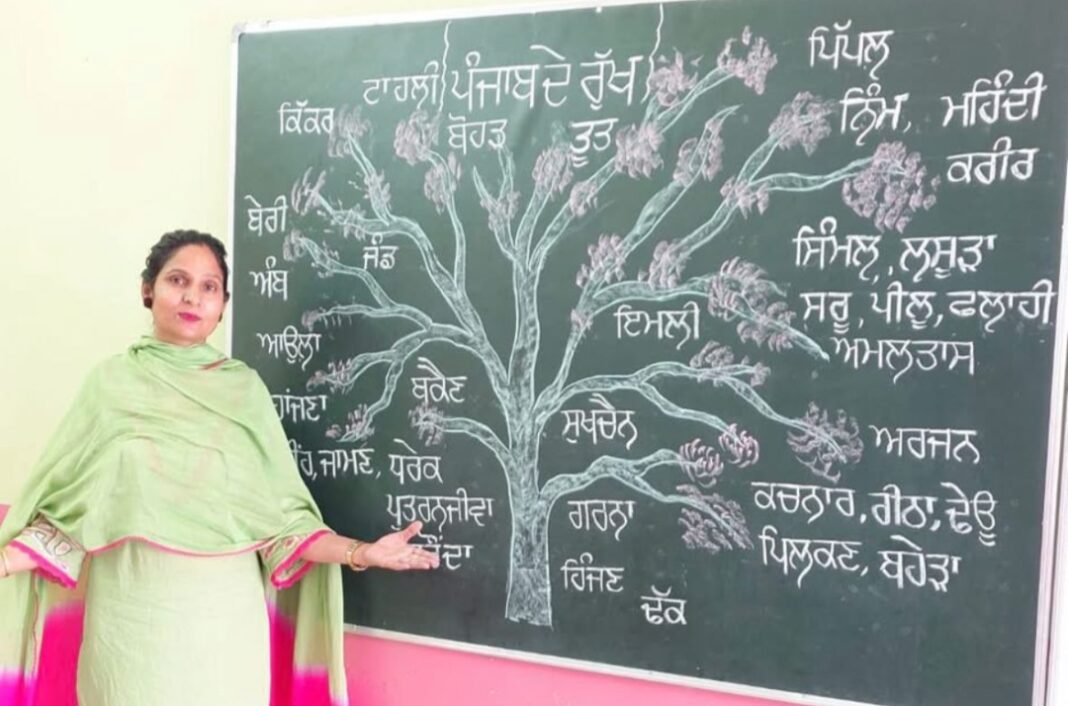 ਟਾਹਲੀ ਪੰਜਾਬ ਦੇ ਰੁੱਖ
ਕਿੱਕਰ
ਬੋਹੜ ਤੂਤ
ਪਿੱਪਲ਼
ਨਿੰਮ, ਮਹਿੰਦੀ
ਕਰੀਰ
ਬੇਰੀ
ਜੰਡ
ਅੰਬ
ਸਿੰਮਲ਼, ਲਸੂੜਾ
ਸਰੂ, ਪੀਲੂ, ਫਲਾਹੀ
ਇਮਲੀ
ਅਮਲਤਾਸ
ਆਉਲਾ
ਬਕੈਣ
ਸੁਖਚੈਨ
ਅਰਜਨ
ਜਾਮਣ, ਧਰੇਕ
ਪੁਤਰਨਜੀਵਾ
ਗਰਨਾ
ਕਚਨਾਰ, ਰੀਠਾ, ਢੇਊ
ਪਿਲਕਣ, ਬਹੇੜਾ
ਹਿੰਜਣ
ਢੱਕ